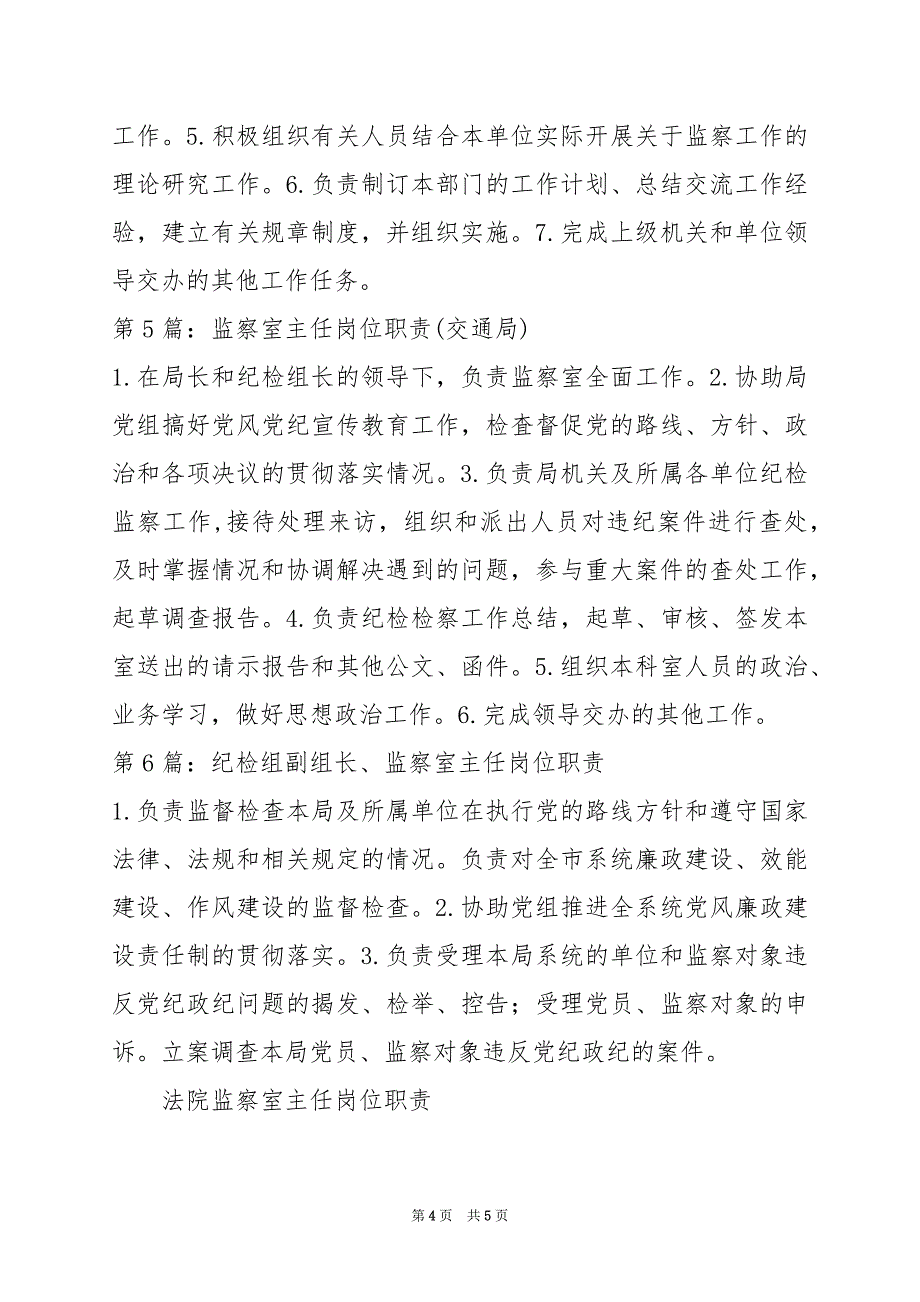 工作。5.积极组织有关人员结合本单位实际开展关于监察工作的
理论研究工作。6.负责制订本部门的工作计划、总结交流工作经
验，建立有关规章制度，并组织实施。7.完成上级机关和单位领
导交办的其他工作任务。
第5篇：监察室主任岗位职责(交通局)
1.在局长和纪检组长的领导下，负责监察室全面工作。2.协助局
党组搞好党风党纪宣传教育工作，检查督促党的路线、方针、政
治和各项决议的贯彻落实情况。3.负责局机关及所属各单位纪检
监察工作,接待处理来访，组织和派出人员对违纪案件进行查处，
及时掌握情况和协调解决遇到的问题，参与重大案件的查处工作，
起草调查报告。4.负责纪检检察工作总结，起草、审核、签发本
室送出的请示报告和其他公文、函件。5.组织本科室人员的政治、
业务学习，做好思想政治工作。6.完成领导交办的其他工作。
第6篇：纪检组副组长、监察室主任岗位职责
1.负责监督检查本局及所属单位在执行党的路线方针和遵守国家
法律、法规和相关规定的情况。负责对全市系统廉政建设、效能
建设、作风建设的监督检查。2.协助党组推进全系统党风廉政建
设责任制的贯彻落实。3.负责受理本局系统的单位和监察对象违
反党纪政纪问题的揭发、检举、控告；受理党员、监察对象的申
诉。立案调查本局党员、监察对象违反党纪政纪的案件。
法院监察室主任岗位职责
第4页 共5页